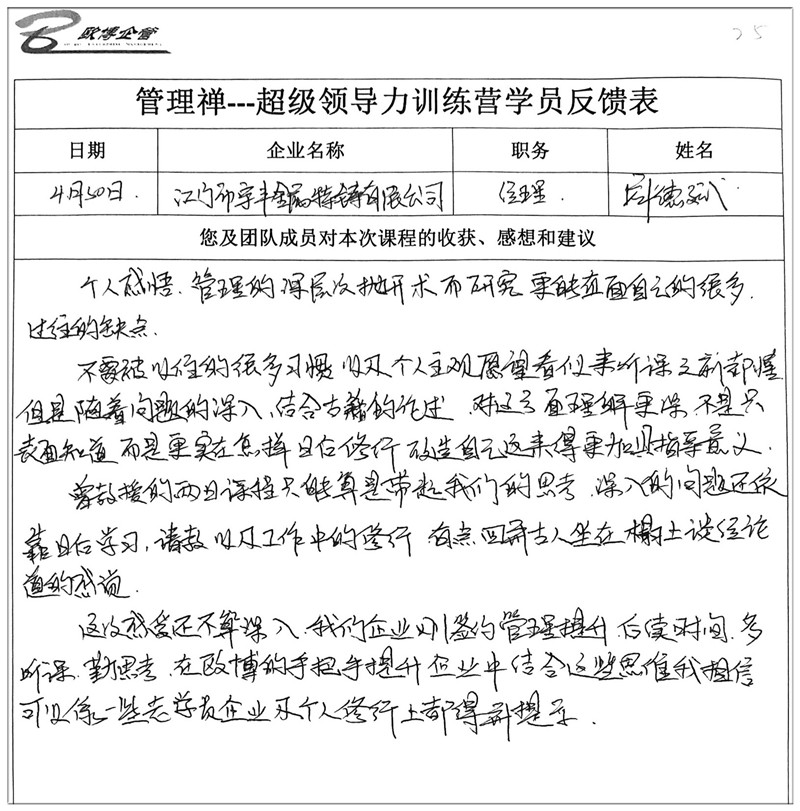 欧博企管
25
管理禅---超级领导力训练营学员反馈表
日期 企业名称 职务 姓名
4月30日. 江门市宇丰金属特铸有限公司 经理.
您及团队成员对本次课程的收获、感想和建议
个人感悟.管理的深层次抛开术而研究 更能直面自己的很多.
过往的缺点.
不要被以往的很多习惯 以及个人主观愿望看似来听课之前都懂
但是随着问题的深入.结合古籍的论述 对这方面理解更深.不是只
表面知道 而是更实在怎样日后修行 改造自己这来得更加具指导意义.
曾教授的两日课程只能算是带起我们的思考.深入的问题还依
靠日后学习,请教 以及工作中的修行 有点回到古人坐在榻上谈经论
道的感觉.
这次感受还不算深入.我们企业刚签约管理提升.后续时间.多
听课.勤思考.在欧博的手把手提升企业中结合这些思维我相信
可以像一些老学员企业及个人修行上都得到提升.